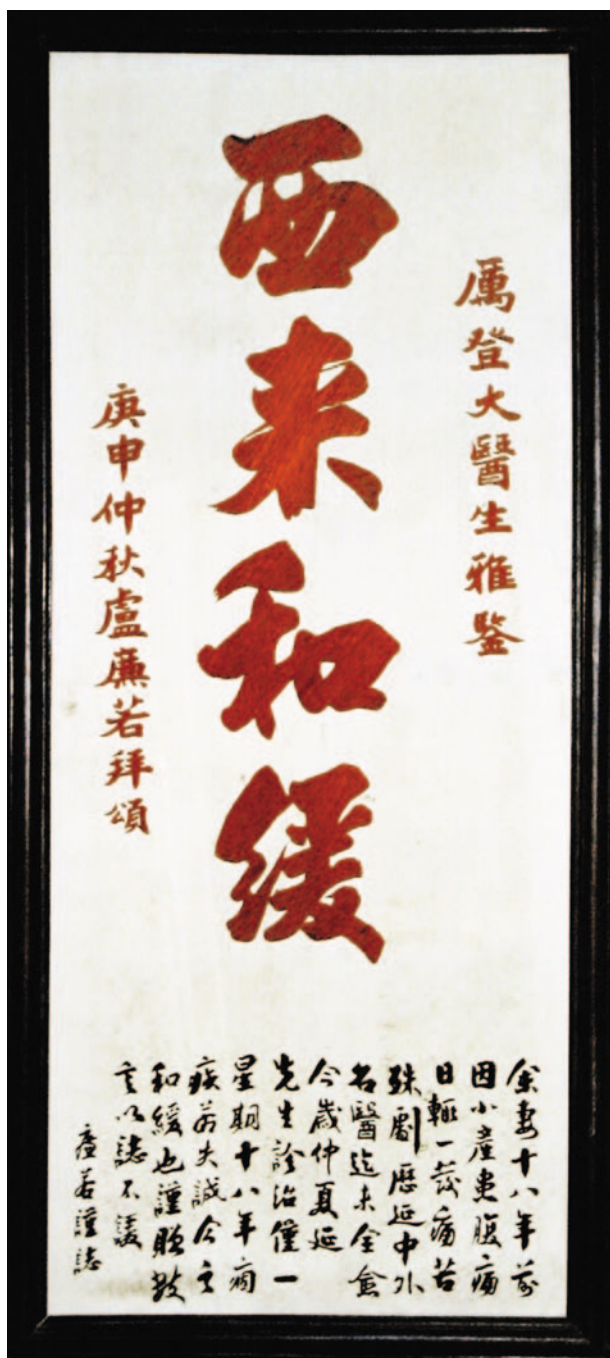 厲登大醫生雅鋻
西来和緩
庚申仲秋盧廉若拜頌
余妻十八年前
因小產患腹痛
日輒一發痛苦
殊劇歷延中外
名醫迄未全愈
今歲仲夏延
先生診治僅一
星期十八年痼
疾若失誠今之
和緩也謹贈數
言以誌不諼
廉若謹誌